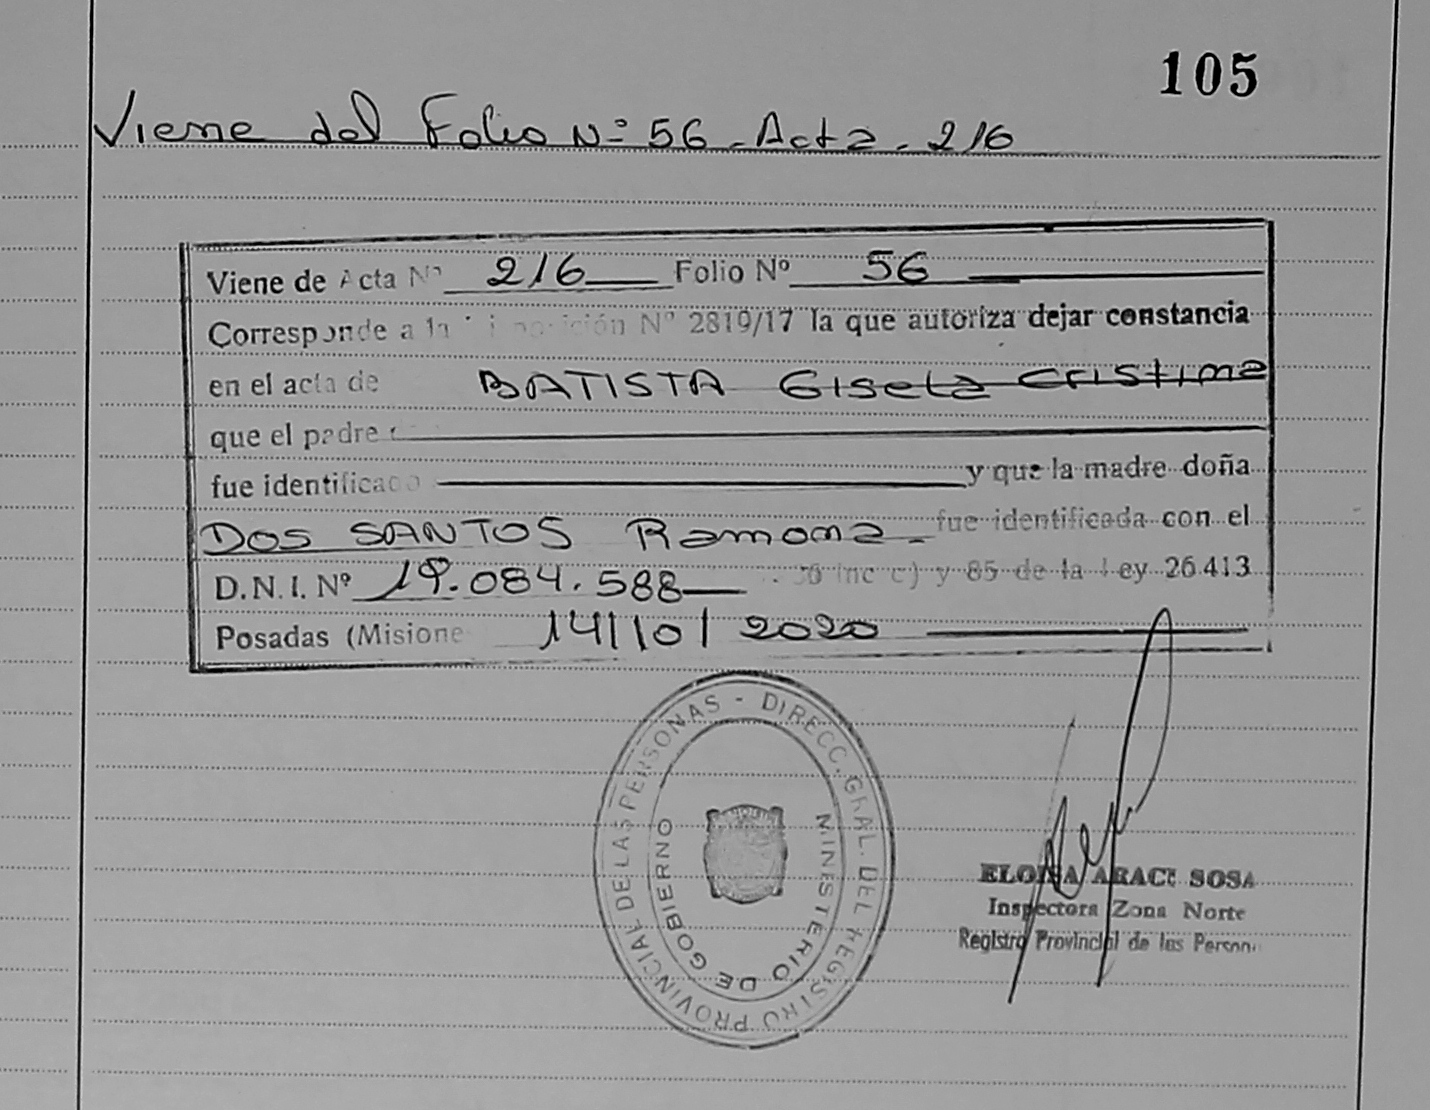 105
Viene del Folio Nº 56 - Acta - 216
Viene de Acta Nº 216 Folio Nº 56
Corresponde a la Nº 2819/17 la que autoriza dejar constancia
en el acta de BATISTA Gisela Cristina
que el padre
fue identificado y que la madre doña
DOS SANTOS Ramona - fue identificada con el
D.N.I. Nº 19.084.588 inc c) y 85 de la Ley 26.413
Posadas (Misione 14/10/2020
DIRECC. GRAL. DEL REGISTRO PROVINCIAL DE LAS PERSONAS -
MINISTERIO DE GOBIERNO
ARACI SOSA
Inspectora Zona Norte
Registro Provincial de las Person